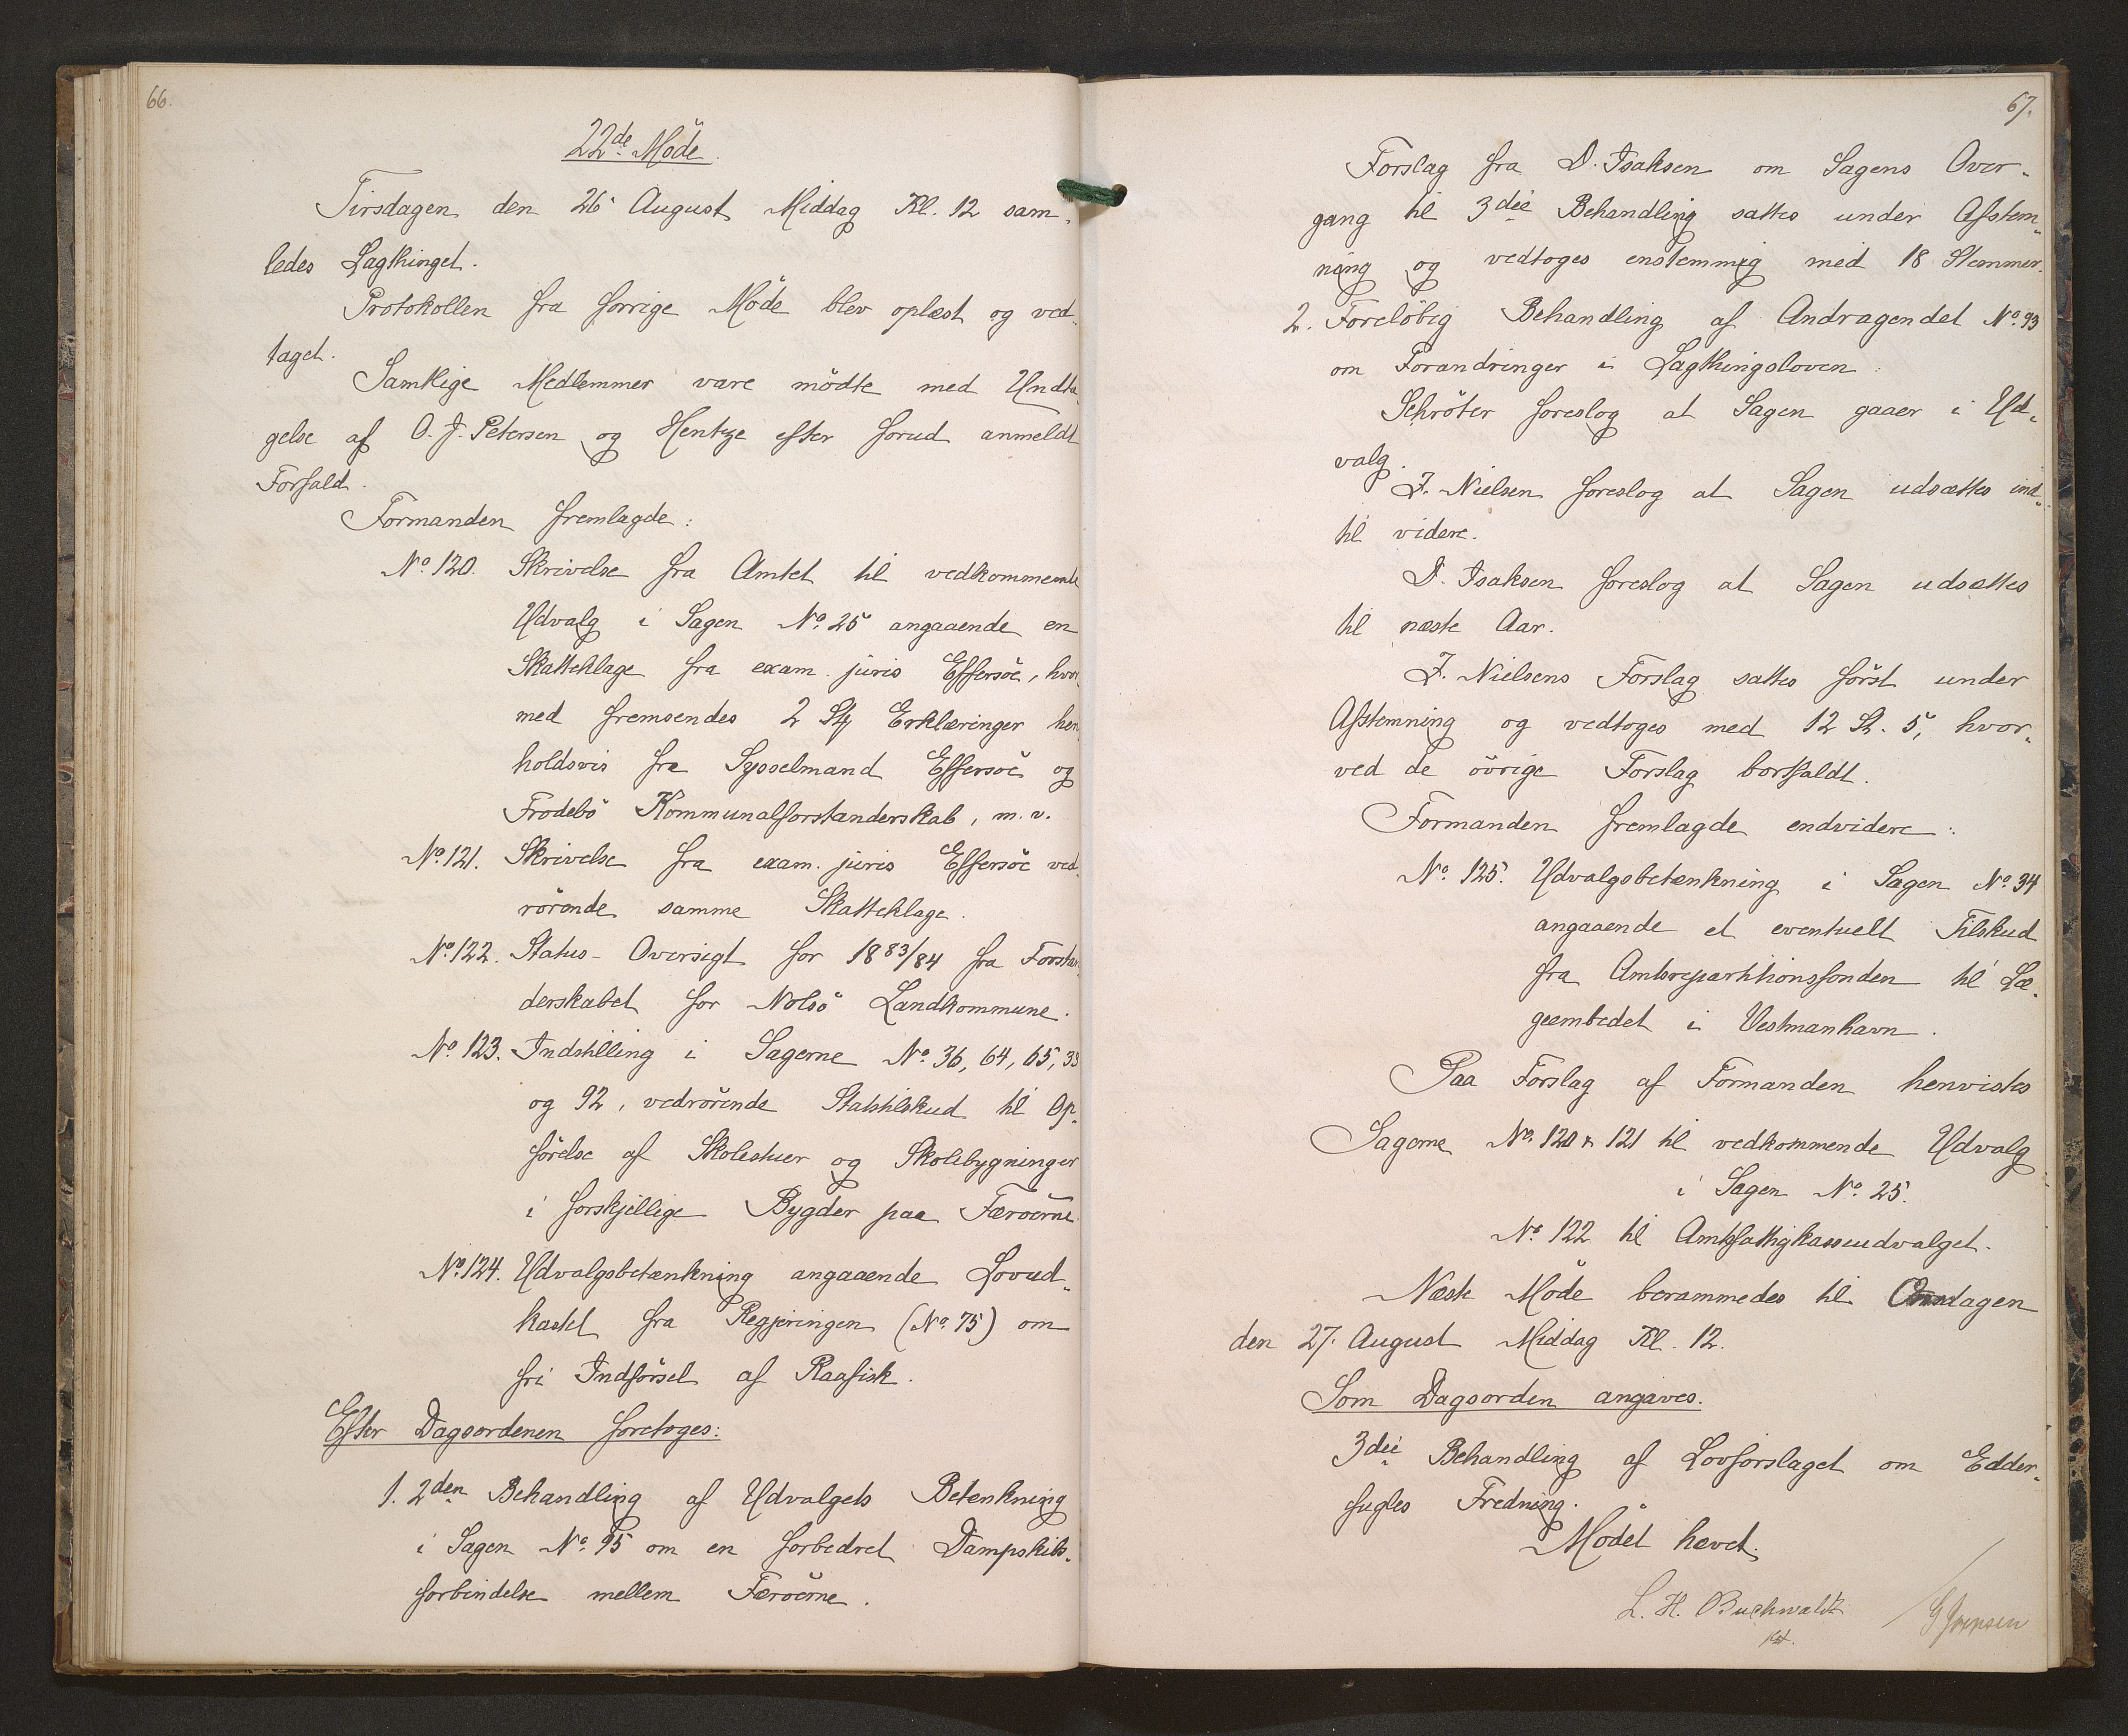 66.
22de Möde.
Tirsdagen den 26' August Middag Kl. 12 sam-
ledes Lagthinget.
Protokollen fra forrige Möde blev oplæst og ved-
taget.
Samtlige Medlemmer vare mödte med Undta-
gelse af O. J. Petersen og Hentze efter forud anmeldt
Forfald.
Formanden fremlagde:
No. 120. Skrivelse fra Amtet til vedkommende
Udvalg i Sagen No. 25 angaaende en
Skatteklage fra exam. juris Effersöe, hvor
med fremsendes 2 Stk Erklæringer hen-
holdsvis fra Sysselmand Effersöe og
Frodebö Kommunalforstanderskab, m. v.
No. 121. Skrivelse fra exam. juris Effersöe ved-
rörende samme Skatteklage.
No. 122. Status-Oversigt for 1883/84 fra Forstan-
derskabet for Nolsö Landkommune.
No. 123. Indstilling i Sagerne No. 36, 64, 65, 33
og 92, vedrörende Statstilskud til Op-
förelse af Skolestuer og Skolebygninger
i forskjellige Bygder paa Færöerne.
No. 124. Udvalgsbetænkning angaaende Lovud-
kastet fra Regjeringen (No. 75) om
fri Indförsel af Raafisk.
Efter Dagsordenen foretoges:
1. 2den Behandling af Udvalgets Betænkning
i Sagen No. 95 om en forbedret Dampskibs-
forbindelse mellem Færöerne.
67.
Forslag fra D. Isaksen om Sagens Over-
gang til 3die Behandling sattes under Afstem-
ning og vedtoges enstemmig med 18 Stemmer.
2. Forelöbig Behandling af Andragendet No. 93
om Forandringer i Lagthingsloven.
Schröter foreslog at Sagen gaaer i Ud-
valg.
J. Nielsen foreslog at Sagen udsættes ind-
til videre.
D. Isaksen foreslog at Sagen udsættes
til næste Aar.
J. Nielsens Forslag sattes först under
Afstemning og vedtoges med 12 St. 5, hvor-
ved de övrige Forslag bortfaldt.
Formanden fremlagde endvidere:
No. 125. Udvalgsbetænkning i Sagen No. 34
angaaende et eventuelt Tilskud
fra Amtsrepartitionsfonden til Læ-
geembedet i Vestmanhavn.
Paa Forslag af Formanden henvistes
Sagerne No. 120 & 121 til vedkommende Udvalg
i Sagen No. 25.
No. 122 til Amtsfattigkasseudvalget.
Næste Möde berammedes til Onsdagen
den 27. August Middag Kl. 12.
Som Dagsorden angaves.
3die Behandling af Lovforslaget om Edder-
fugles Fredning.
Mödet hævet.
L. H. Buchwaldt